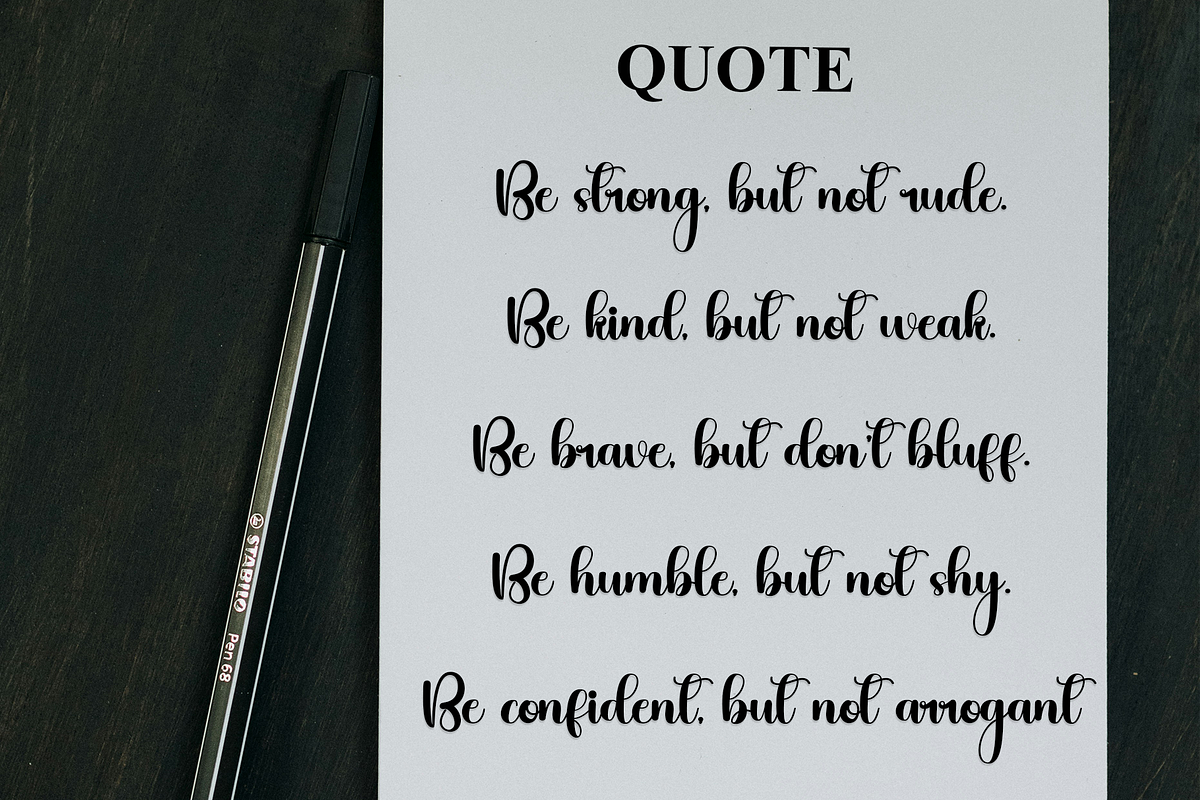 QUOTE
Be strong, but not rude.
Be kind, but not weak.
Be brave, but don't bluff.
Be humble, but not shy.
Be confident, but not arrogant
STABILO Pen 68